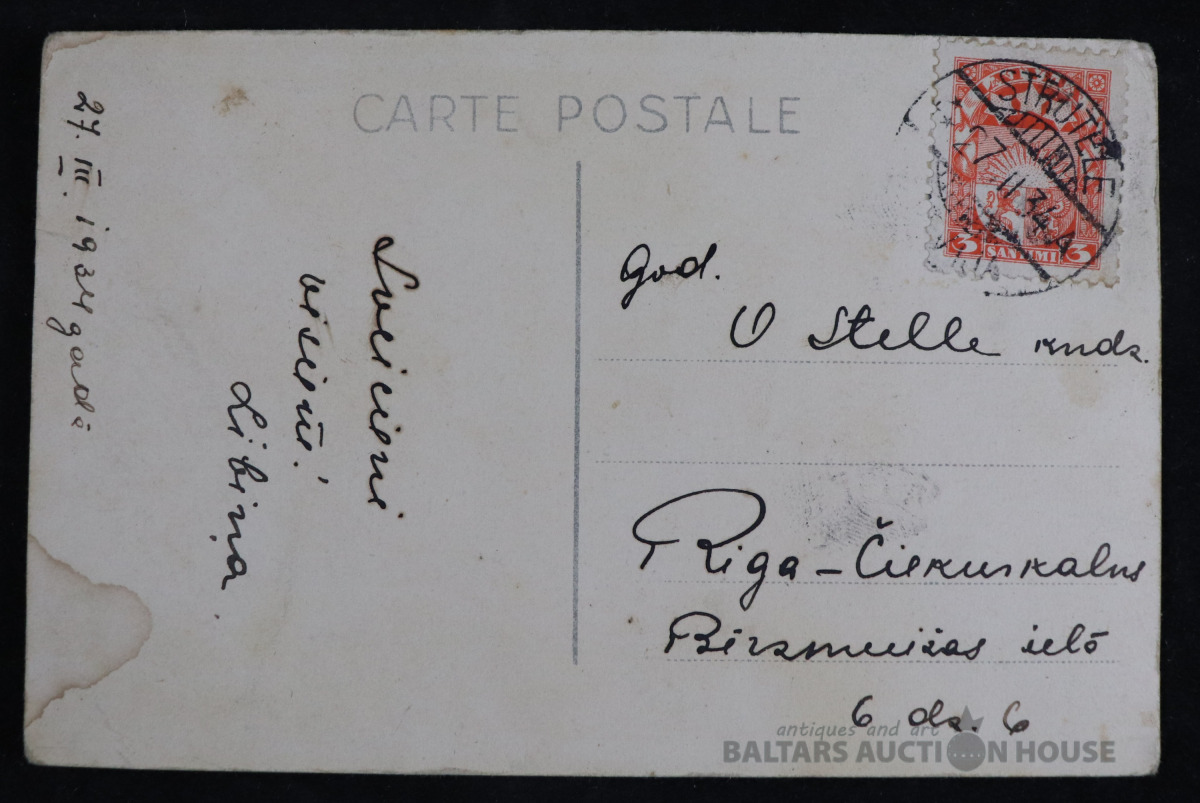 CARTE POSTALE
27. III. 1934 gadā
Sveicieni
visiem!
Libiņa.
STRUTELE
27 34 A
3 SANTIMI 3
God.
O Stelle kndz.
Riga – Čiekurkalns
Birzmuižas ielā
6 dz. 6
antiques and art
BALTARS AUCTION HOUSE